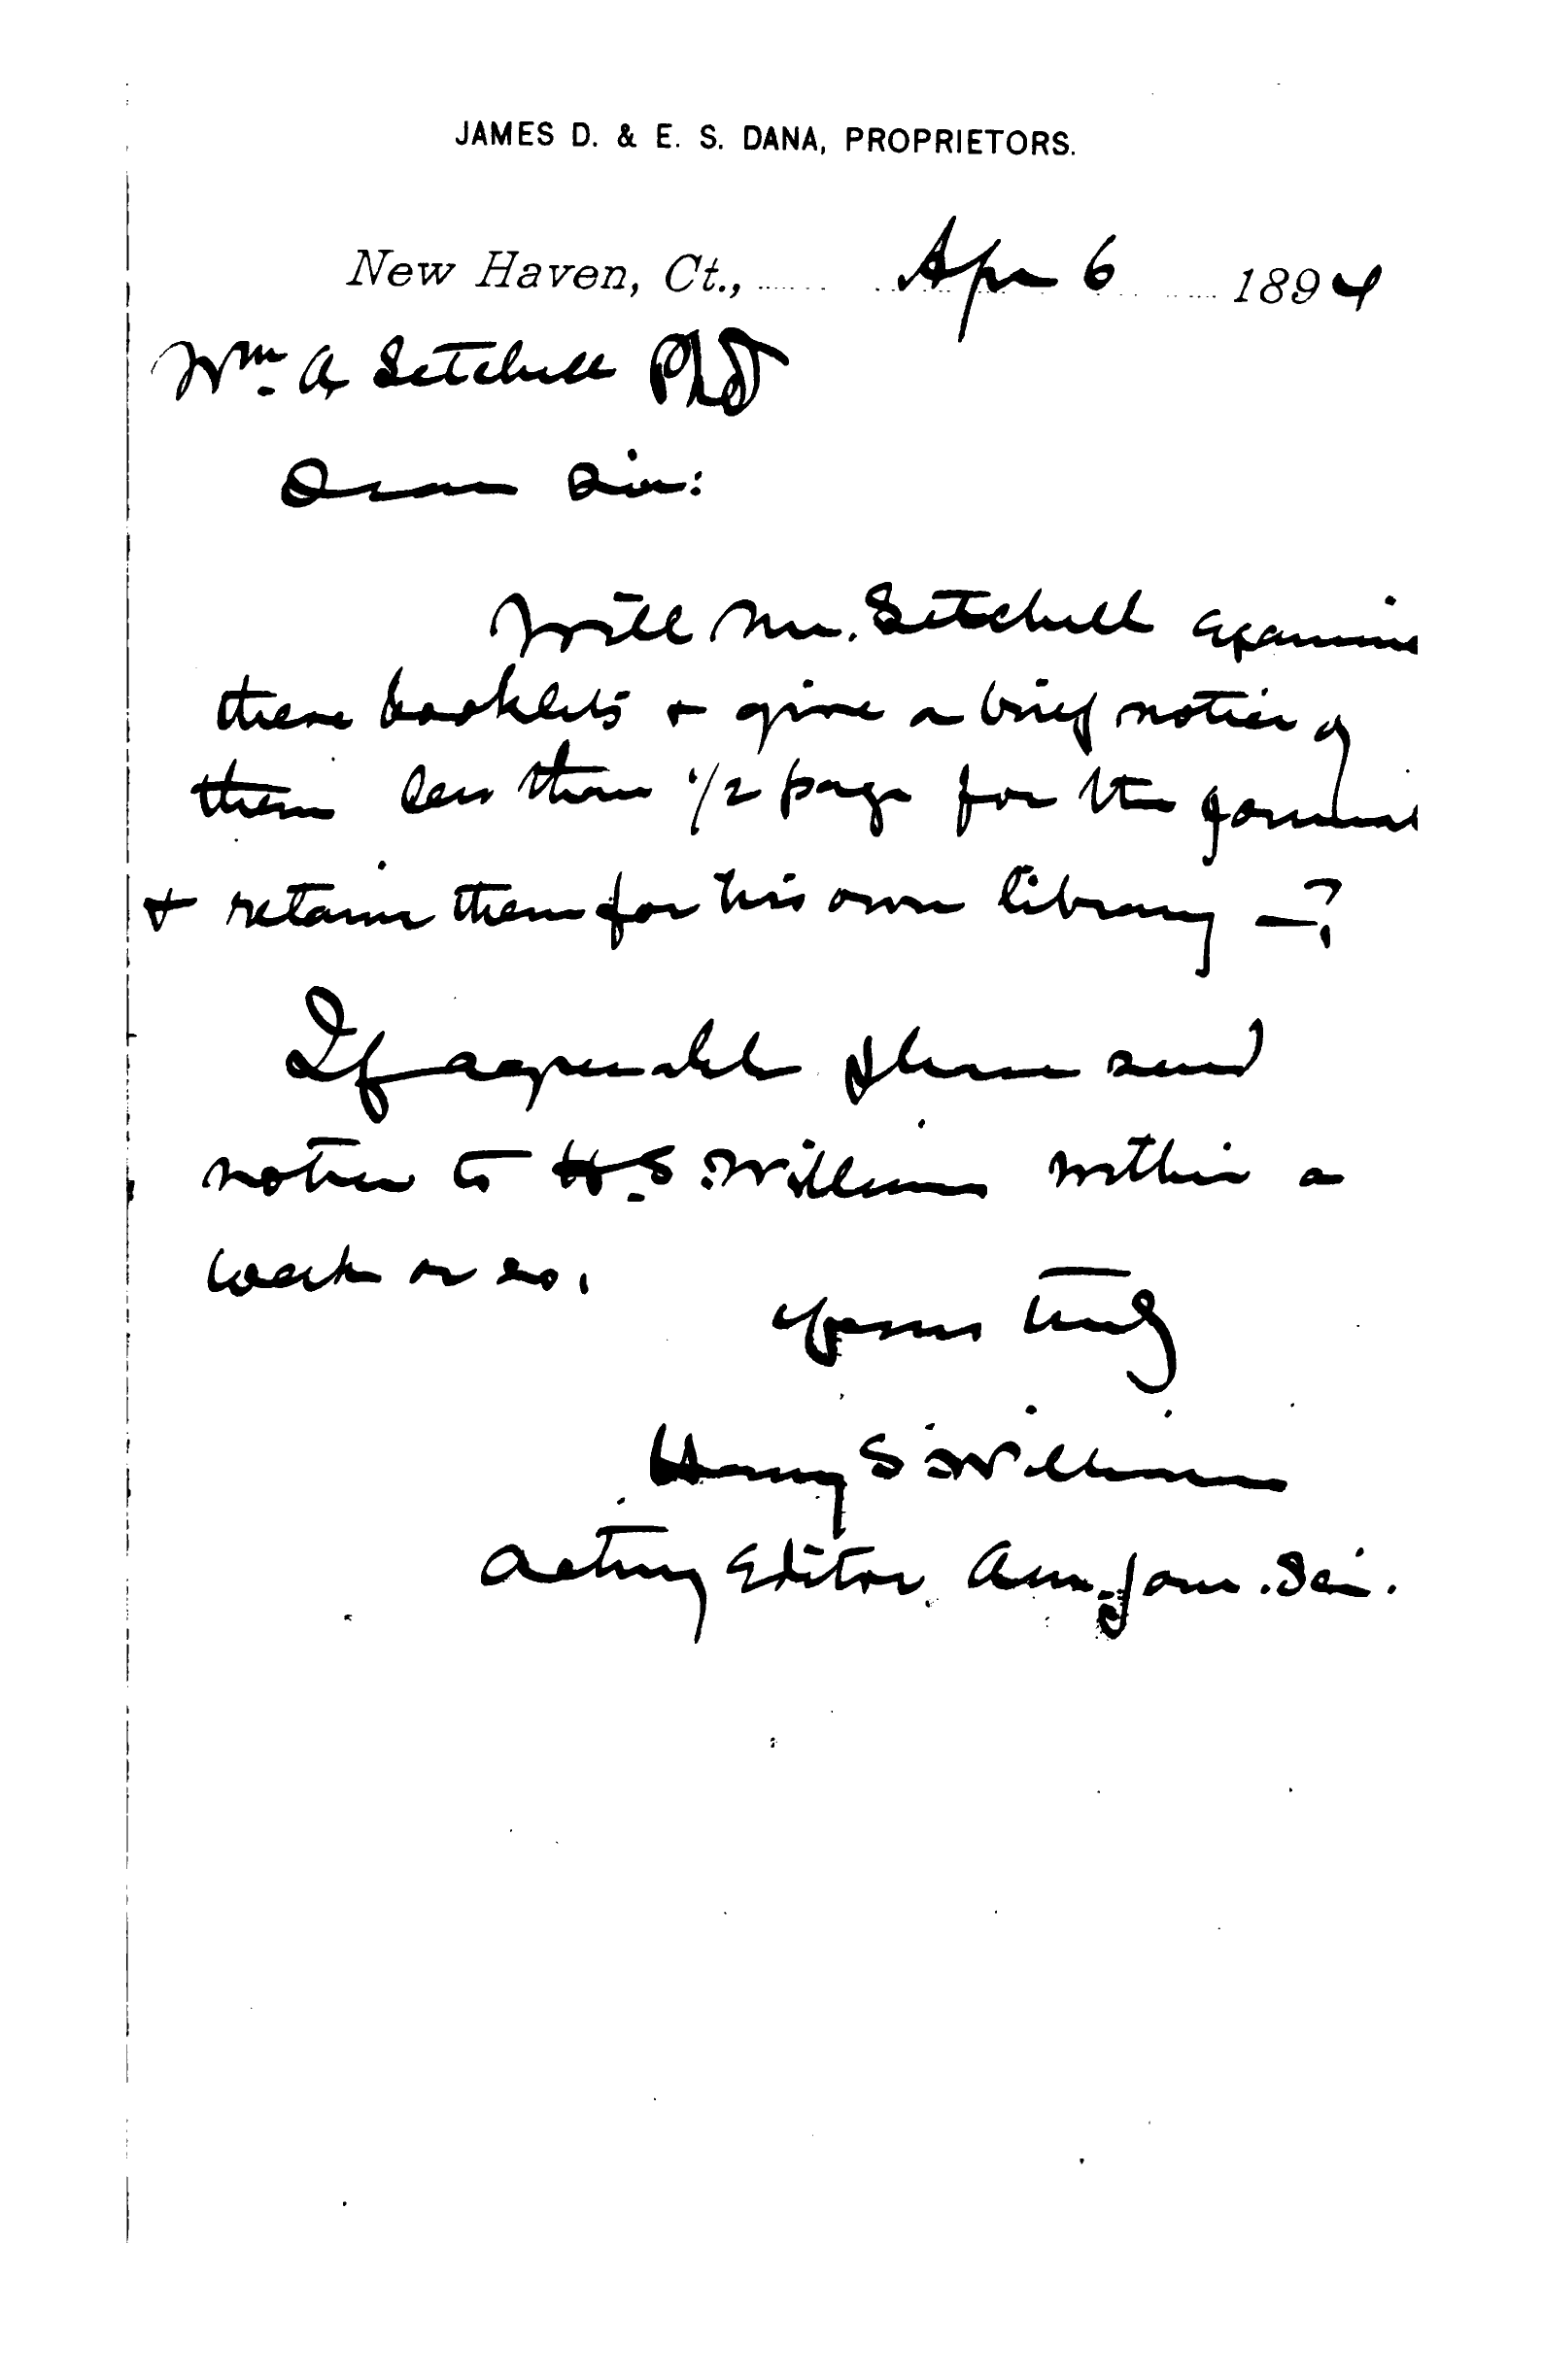 JAMES D. & E. S. DANA, PROPRIETORS.
New Haven, Ct., Apr 6 1894
Wm. A Setchell PhD
Dear Sir:
Will Mr. Setchell examine
these booklets & give a brief notice of
them less than 1/2 page for the Journal
& retain them for his own library —?
If agreeable please send
notice to H.S. Williams within a
week or so.
Yours truly
Henry S Williams
Acting Editor Am. Jour. Sci.